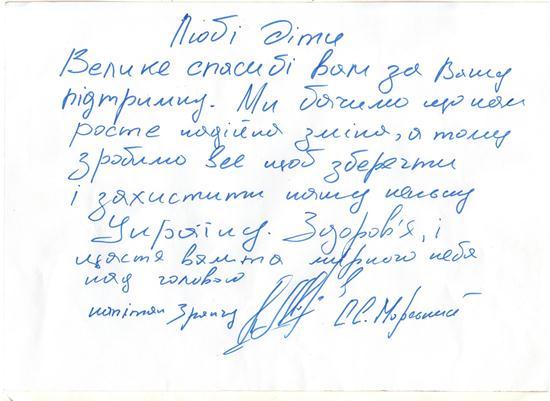 Любі діти
Велике спасибі вам за Вашу
підтримку. Ми бачимо що нам
росте надійна зміна, а тому
зробимо все щоб зберегти
і захистити нашу неньку
Україну. Здоров'я, і
щастя вам та мирного неба
над головою
капітан З рангу С.С. Мор